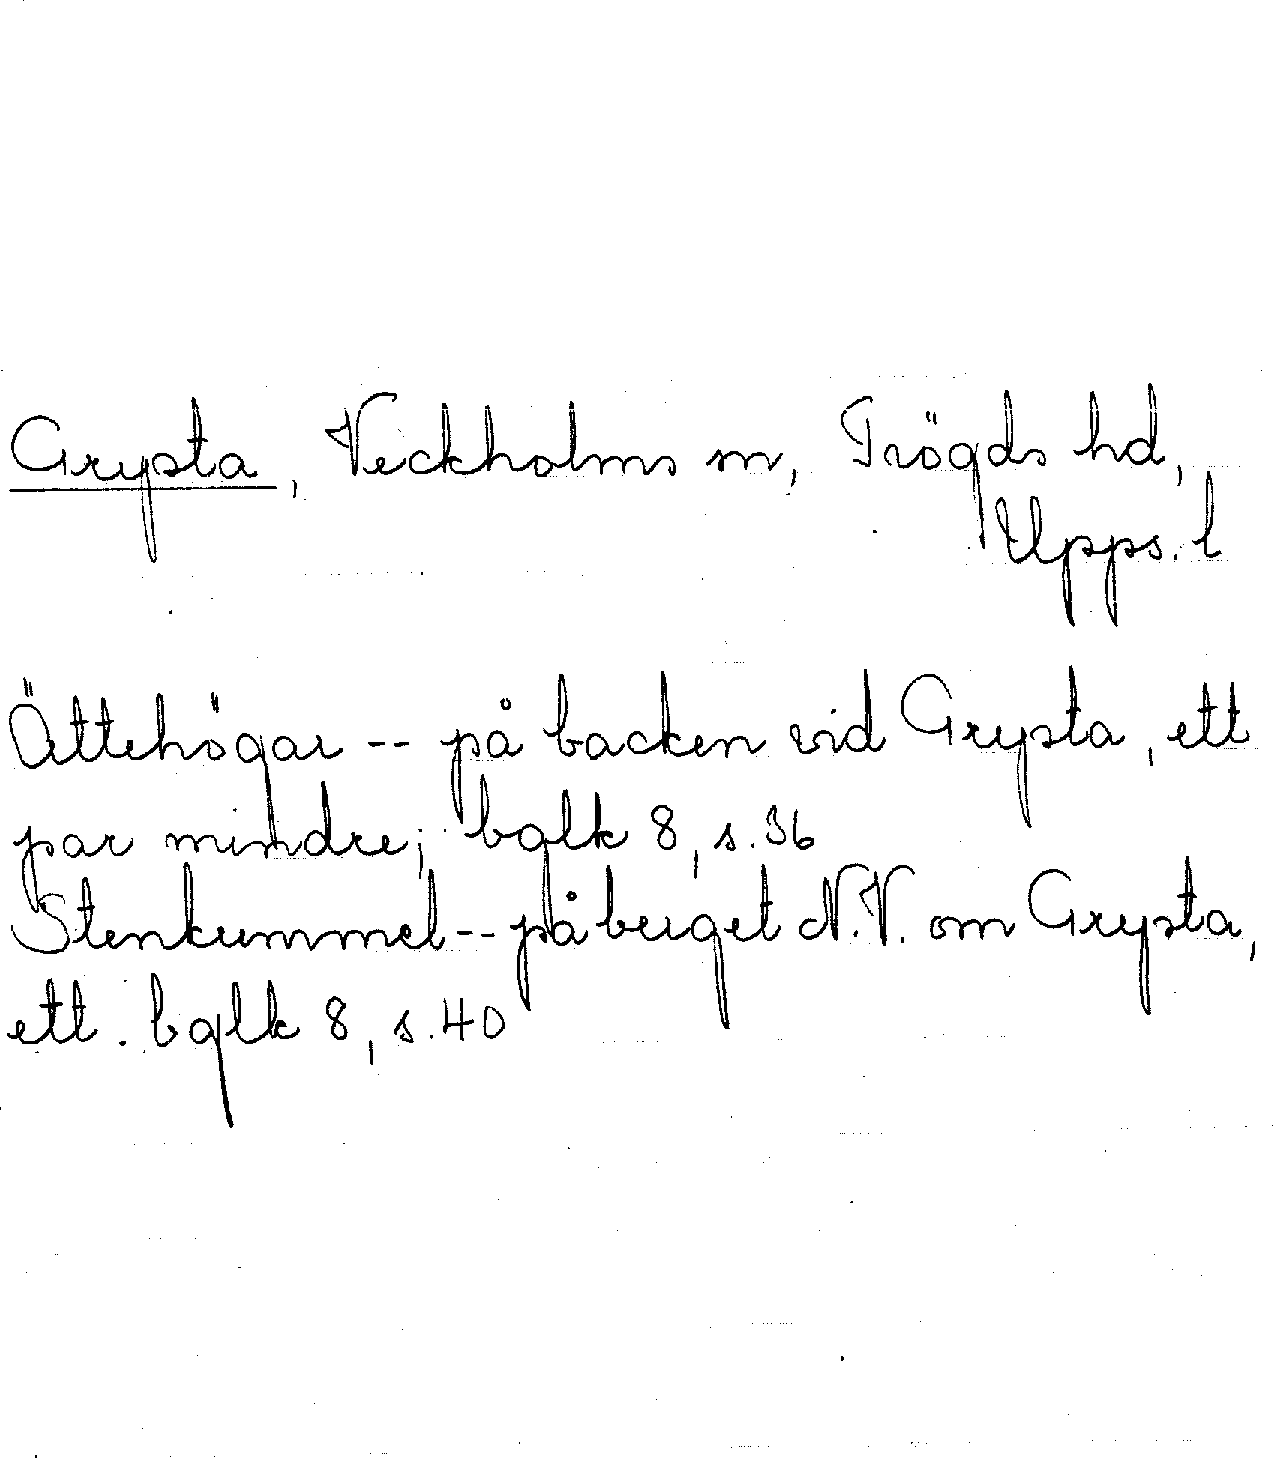 Grysta, Veckholms sn, Trögds hd,
Upps. l
Ättehögar -- på backen vid Grysta, ett
par mindre; bqlk 8, s. 36
Stenkummel -- på berget N.V. om Grysta,
ett. bqlk 8, s. 40